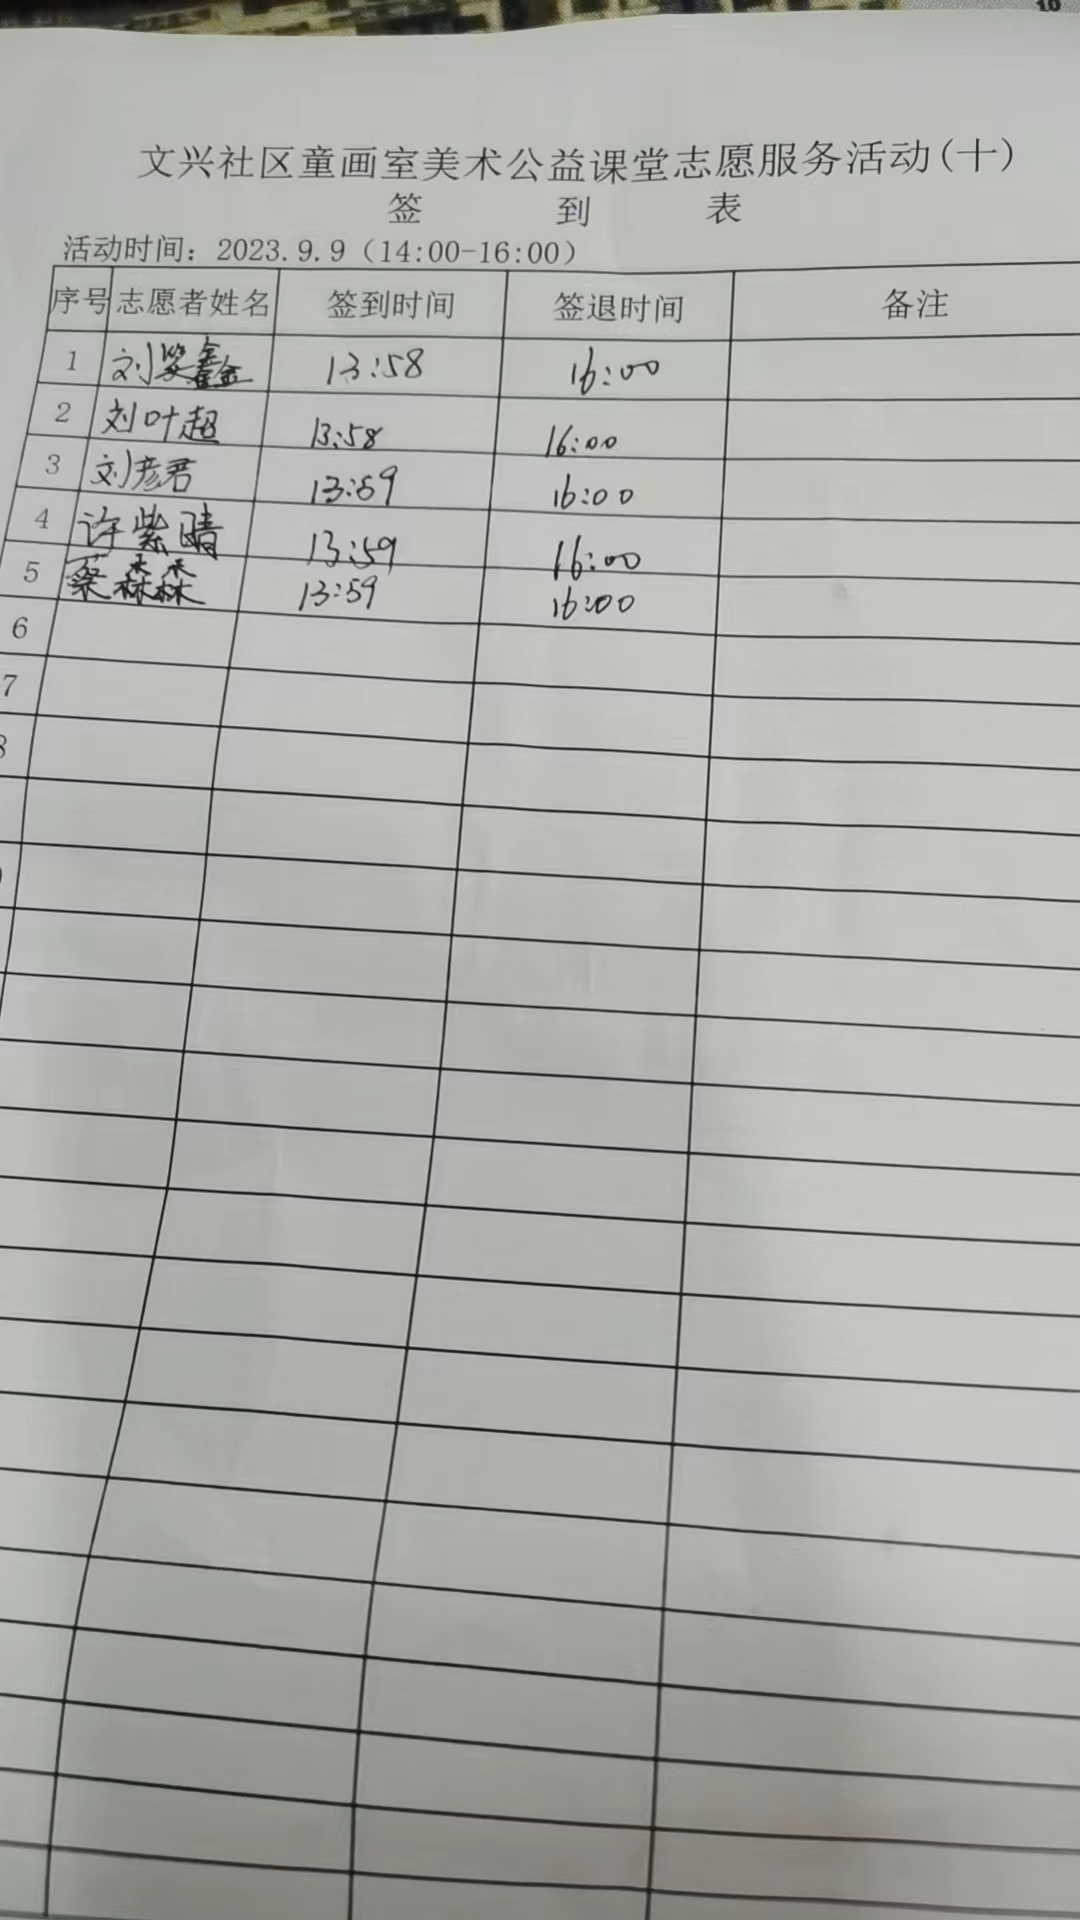 10
文兴社区童画室美术公益课堂志愿服务活动(十)
签 到 表
活动时间：2023.9.9（14:00-16:00）
序号 志愿者姓名 签到时间 签退时间 备注
1 刘笑鑫 13:58 16:00
2 刘叶超 13:58 16:00
3 刘彦君 13:59 16:00
4 许紫晴 13:59 16:00
5 蔡森森 13:59 16:00
6
7
8